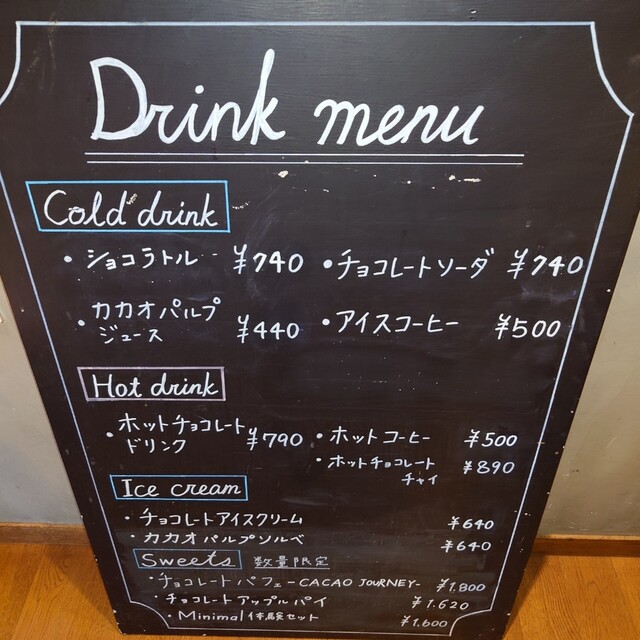 Drink menu
Cold drink
・ショコラトル ¥740 ・チョコレートソーダ ¥740
・カカオパルプ
ジュース ¥440 ・アイスコーヒー ¥500
Hot drink
・ホットチョコレート
ドリンク ¥790 ・ホットコーヒー ¥500
・ホットチョコレート
チャイ ¥890
Ice cream
・チョコレートアイスクリーム ¥640
・カカオパルプソルベ ¥640
Sweets 数量限定
・チョコレートパフェ -CACAO JOURNEY- ¥1.800
・チョコレートアップルパイ ¥1.620
・Minimal体験セット ¥1.600